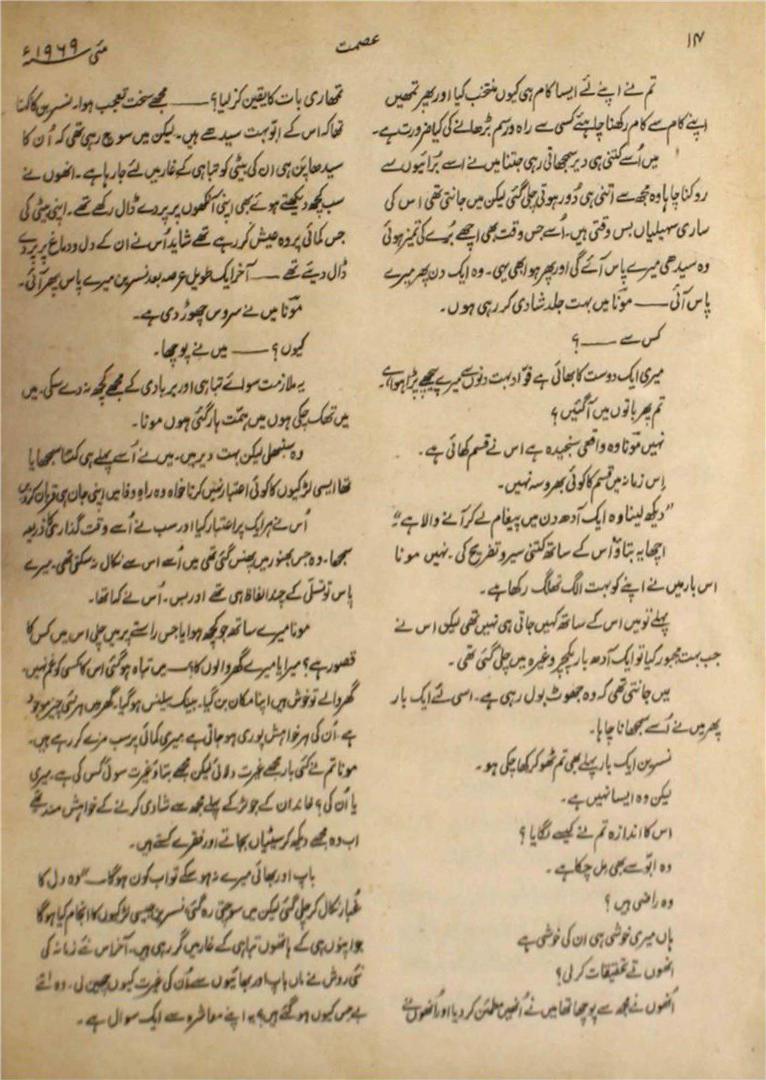 ۱۴
عصمت
مئی ۱۹۶۹ء
تم نے اپنے لئے ایسا کام ہی کیوں منتخب کیا اور پھر تمھیں
اپنے کام سے کام رکھنا چاہیئے کسی سے راہ و رسم بڑھانے کی کیا ضرورت ہے۔
میں اُسے کتنی ہی دیر سمجھاتی رہی جتنا میں نے اسے بُرائیوں سے
روکنا چاہا وہ مجھ سے اتنی ہی دُور ہوتی چلی گئی لیکن میں جانتی تھی اس کی
ساری سہیلیاں بس وقتی ہیں۔ اُسے جس وقت بھی اچھے بُرے کی تمیز ہوئی
وہ سیدھی میرے پاس آئے گی اور پھر ہوا بھی یہی۔ وہ ایک دن پھر میرے
پاس آئی —— مونا میں بہت جلد شادی کر رہی ہوں۔
کس سے —— ؟
میری ایک دوست کا بھائی ہے فواد بہت دنوں سے میرے پیچھے پڑا ہوا ہے۔
تم پھر باتوں میں آگئیں ؟
نہیں مونا وہ واقعی سنجیدہ ہے اس نے قسم کھائی ہے۔
اِس زمانہ میں قسم کا کوئی بھروسہ نہیں۔
"دیکھ لینا وہ ایک آدھ دن میں پیغام لے کر آنے والا ہے"
اچھا یہ بتاؤ اس کے ساتھ کتنی سیر و تفریح کی۔ نہیں مونا
اس بار میں نے اپنے کو بہت الگ تھلگ رکھا ہے۔
پہلے تو میں اس کے ساتھ کہیں جاتی ہی نہیں تھی لیکن اس نے
جب بہت مجبور کیا تو ایک آدھ بار پکچر وغیرہ میں چلی گئی تھی۔
میں جانتی تھی کہ وہ جھوٹ بول رہی ہے۔ اسی لئے ایک بار
پھر میں نے اُسے سمجھانا چاہا۔
نسرین ایک بار پہلے بھی تم ٹھوکر کھا چکی ہو۔
لیکن وہ ایسا نہیں ہے۔
اس کا اندازہ تم نے کیسے لگایا ؟
وہ ابّو سے بھی مل چکا ہے۔
وہ راضی ہیں ؟
ہاں میری خوشی ہی ان کی خوشی ہے
انھوں نے تحقیقات کر لی؟
اُنھوں نے مجھ سے پوچھا تھا میں نے اُنھیں مطمئن کر دیا اور اُنھوں نے
تمھاری بات کا یقین کر لیا؟ —— مجھے سخت تعجب ہوا۔ نسرین کا کہنا
تھا کہ اس کے ابّو بہت سیدھے ہیں۔ لیکن میں سوچ رہی تھی کہ اُن کا
سیدھا پن ہی ان کی بیٹی کو تباہی کے غار میں لئے جا رہا ہے۔ انھوں نے
سب کچھ دیکھتے ہوئے بھی اپنی آنکھوں پر پردے ڈال رکھے تھے۔ اپنی بیٹی کی
جس کمائی پر وہ عیش کر رہے تھے شاید اُس نے ان کے دل و دماغ پر پردے
ڈال دیئے تھے —— آخر ایک طویل عرصہ بعد نسرین میرے پاس پھر آئی۔
مونا میں نے سروس چھوڑ دی ہے۔
کیوں ؟ —— میں نے پوچھا۔
یہ ملازمت سوائے تباہی اور بربادی کے مجھے کچھ نہ دے سکی۔ میں
میں تھک چکی ہوں میں ہمّت ہار گئی ہوں مونا۔
وہ سنبھلی لیکن بہت دیر میں۔ میں نے اُسے پہلے ہی کتنا سمجھایا
تھا ایسی لڑکیوں کا کوئی اعتبار نہیں کرتا خواہ وہ راہِ وفا میں اپنی جان ہی قربان کردیں
اُس نے ہر ایک پر اعتبار کیا اور سب نے اُسے وقت گذاری کا ذریعہ
سمجھا۔ وہ جس بھنور میں پھنس گئی تھی میں اُسے اس سے نکال نہ سکتی تھی۔ میرے
پاس تو تسلّی کے چند الفاظ ہی تھے اور بس۔ اُس نے کہا تھا۔
مونا میرے ساتھ جو کچھ ہوا یا جس راستے پر میں چلی اس میں کس کا
قصور ہے ؟ میرا یا میرے گھر والوں کا؟ میں تباہ ہو گئی اس کا کسی کو غم نہیں۔
گھر والے تو خوش ہیں اپنا مکان بن گیا۔ بینک بیلنس ہو گیا۔ گھر میں ہر نئی چیز موجود
ہے اُن کی ہر خواہش پوری ہو جاتی ہے میری کمائی پر سب مزے کر رہے ہیں۔
مونا تم نے کئی بار مجھے غیرت دلائی لیکن مجھے بتاؤ غیرت سوئی کس کی ہے۔ میری
یا اُن کی؟ خاندان کے جو لڑکے پہلے مجھ سے شادی کرنے کے خواہش مند تھے
اب وہ مجھے دیکھ کر سیٹیاں بجاتے اور فقرے کستے ہیں۔
باپ اور بھائی میرے نہ ہو سکے تو اب کون ہو گا — وہ دل کا
غبار نکال کر چلی گئی لیکن میں سوچتی رہ گئی نسرین جیسی لڑکیوں کا انجام کیا ہو گا
جو اپنوں ہی کے ہاتھوں تباہی کے غار میں گر رہی ہیں۔ آخر اس نئے زمانہ کی
نئی روش نے ماں باپ اور بھائیوں سے اُن کی غیرت کیوں چھین لی۔ وہ اتنے
بے حس کیوں ہو گئے ہیں؟ یہ اپنے معاشرہ سے ایک سوال ہے۔